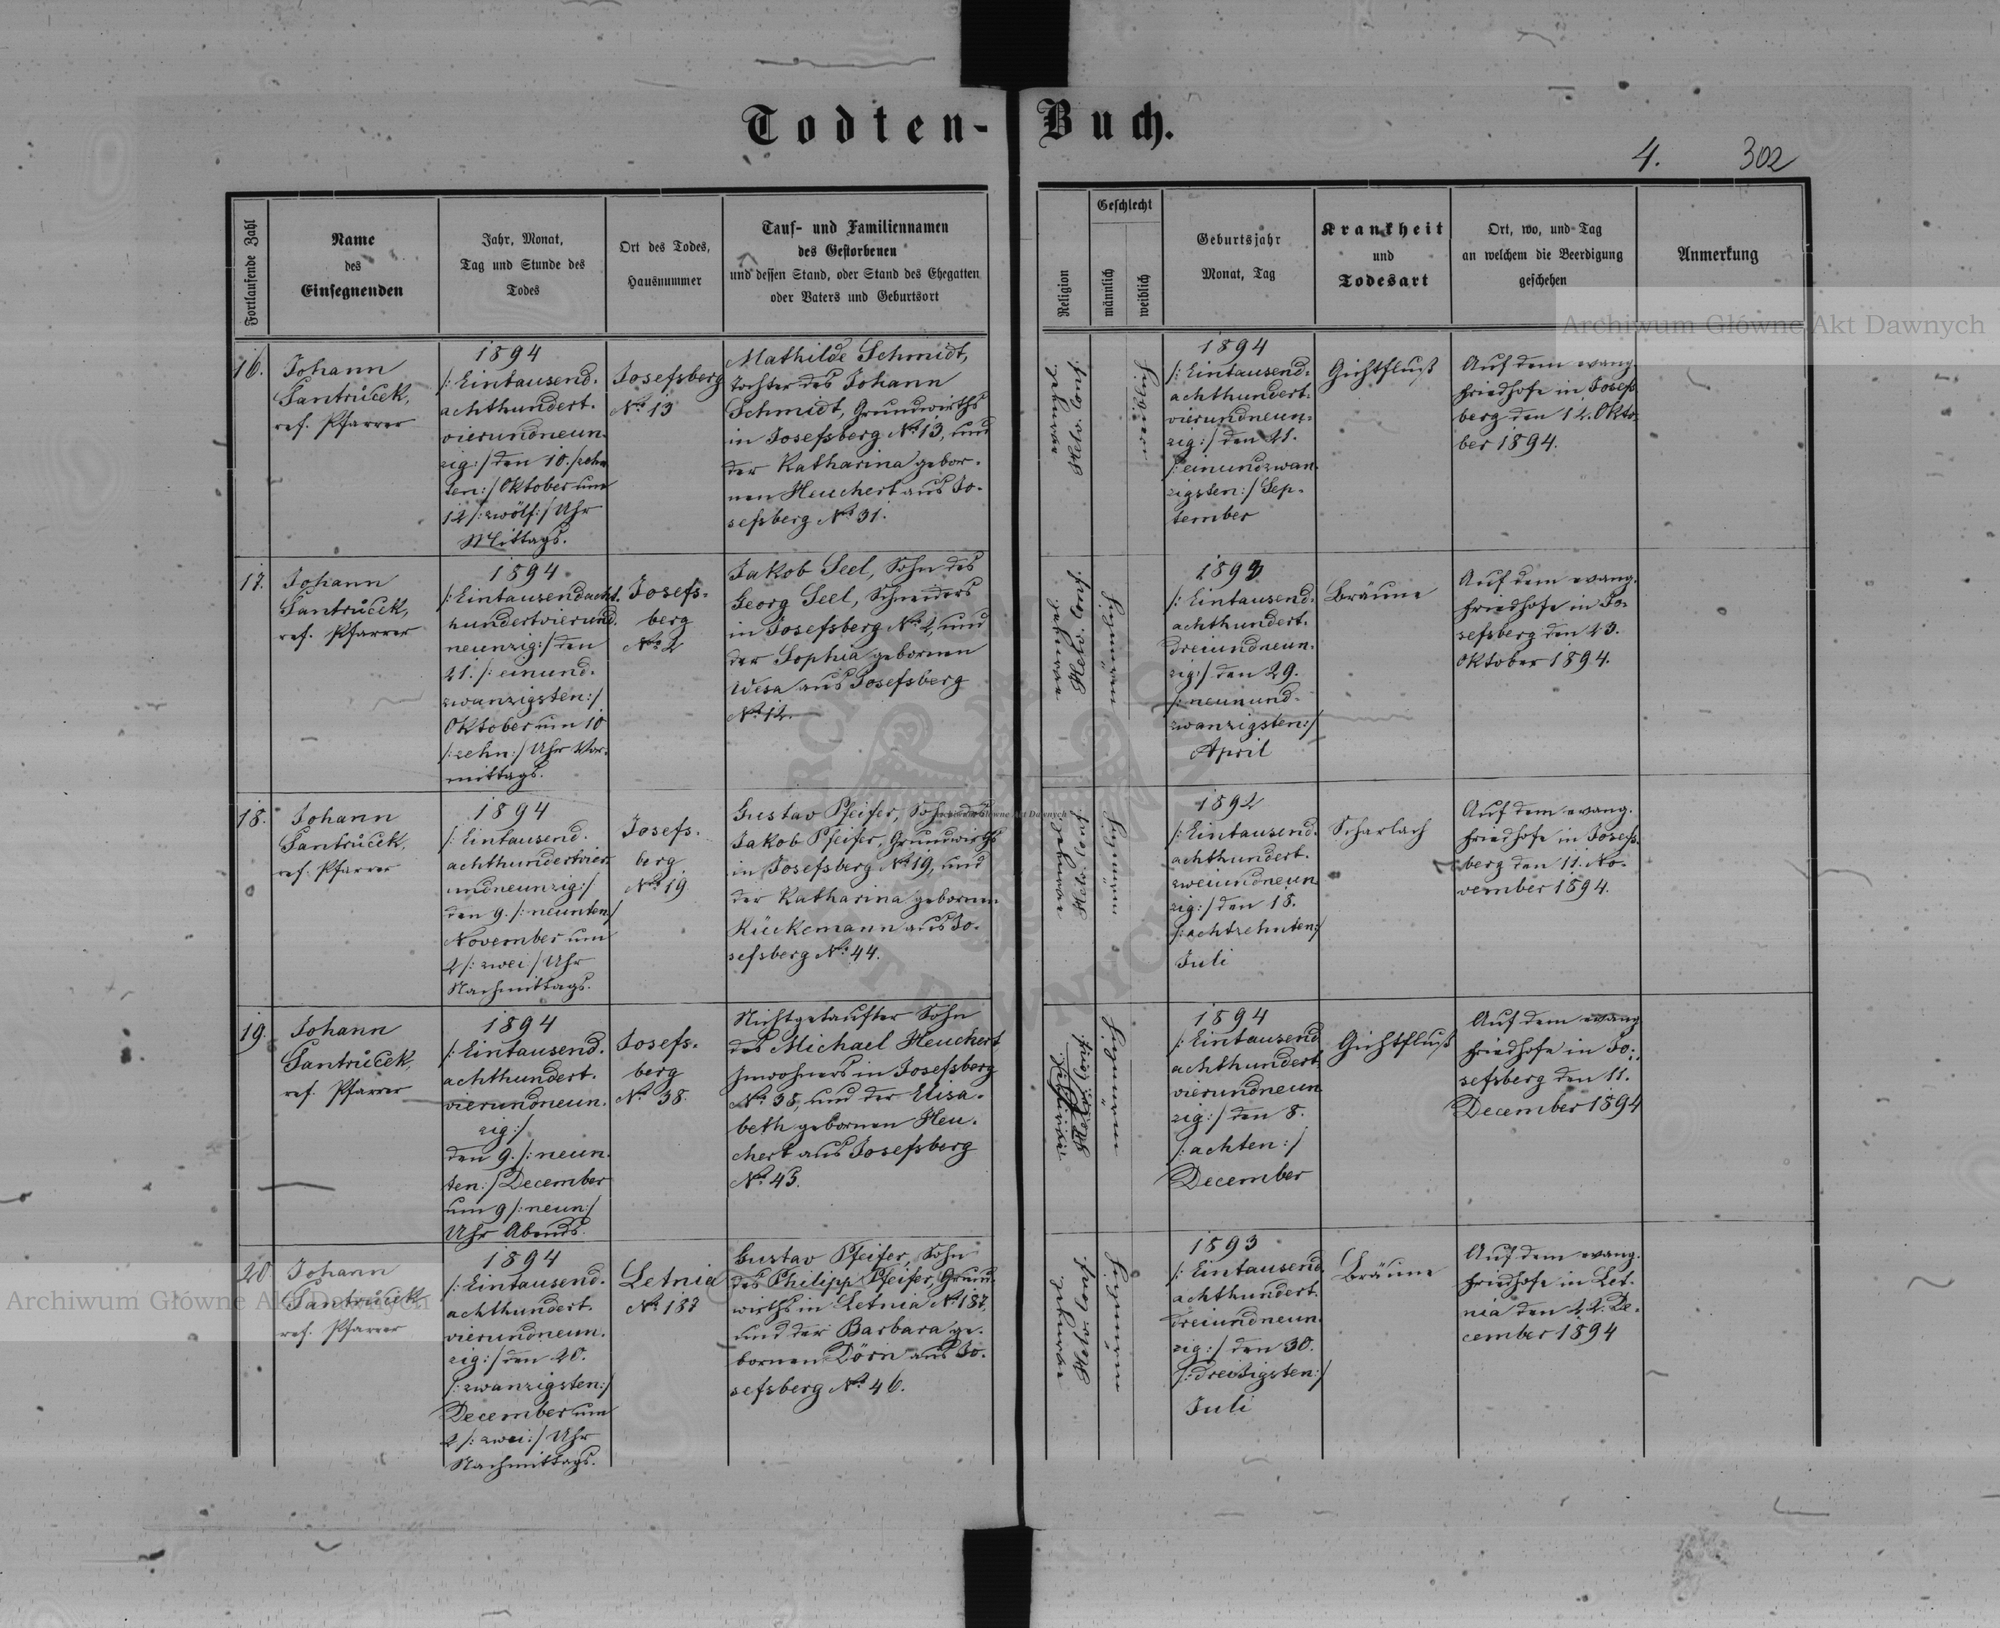 Todten-Buch.
4. 302
Fortlaufende Zahl
Name
des
Einsegnenden
Jahr, Monat,
Tag und Stunde des
Todes
Ort des Todes,
Hausnummer
Tauf- und Familiennamen
des Gestorbenen
und dessen Stand, oder Stand des Ehegatten
oder Vaters und Geburtsort
Religion
Geschlecht
männlich
weiblich
Geburtsjahr
Monat, Tag
Krankheit
und
Todesart
Ort, wo, und Tag
an welchem die Beerdigung
geschehen
Anmerkung
Archiwum Główne Akt Dawnych
16.
Johann
Santrůček,
ref. Pfarrer
1894
/: Eintausend-
achthundert-
vierundneun-
zig :/ den 10. /: zehn
ten :/ Oktober um
12 /: zwölf :/ Uhr
Mittags.
Josefsberg
No 13
Mathilde Schmidt,
Tochter des Johann
Schmidt, Grundwirths
in Josefsberg No 13, und
der Katharina gebor-
nen Heuchert aus Jo-
sefsberg No 31.
Helv. Conf.
1894
/: Eintausend-
achthundert-
vierundneun-
zig :/ den 21.
/: einundzwan-
zigsten :/ Sep-
tember
Gichtfluß
Auf dem evang.
Friedhofe in Josefs
berg den 12. Okto-
ber 1894.
17.
Johann
Santrůček,
ref. Pfarrer
1894
/: Eintausendacht-
hundertvierund-
neunzig :/ den
21. /: einund-
zwanzigsten :/
Oktober um 10
/: zehn :/ Uhr Vor-
mittags.
Josefs-
berg
No 2
Jakob Seel, Sohn des
Georg Seel, Schneiders
in Josefsberg No 2, und
der Sophia gebornen
Wesa aus Josefsberg
No 12.
Helv. Conf.
1893
/: Eintausend-
achthundert-
dreiundneun-
zig :/ den 29.
/: neunund-
zwanzigsten :/
April
Bräune
Auf dem evang.
Friedhofe in Jo-
sefsberg den 23.
Oktober 1894.
18.
Johann
Santrůček,
ref. Pfarrer
1894
/: Eintausend-
achthundertvier-
undneunzig :/
den 9. /: neunten :/
November um
2 /: zwei :/ Uhr
Nachmittags.
Josefs-
berg
No 19
Gustav Pfeifer, Sohn des
Jakob Pfeifer, Grundwirths
in Josefsberg No 19, und
der Katharina gebornen
Kückemann aus Jo-
sefsberg No 44.
Archiwum Główne Akt Dawnych
Helv. Conf.
1892
/: Eintausend-
achthundert-
zweiundneun
zig :/ den 18.
/: achtzehnten :/
Juli
Scharlach
Auf dem evang.
Friedhofe in Josefs-
berg den 11. No-
vember 1894.
19.
Johann
Santrůček,
ref. Pfarrer
1894
/: Eintausend-
achthundert-
vierundneun-
zig :/
den 9. /: neun-
ten :/ December
um 9 /: neun :/
Uhr Abends.
Josefs-
berg
No 38.
Nichtgetaufter Sohn
des Michael Heuchert
Inwohners in Josefsberg
No 38, und der Elisa-
beth gebornen Heu-
chert aus Josefsberg
No 43.
1894
/: Eintausend
achthundert
vierundneun
zig :/ den 8.
/: achten :/
December
Gichtfluß
Auf dem evang
Friedhofe in Jo-
sefsberg den 11.
December 1894
20
Johann
Santrůček
ref. Pfarrer
1894
/: Eintausend-
achthundert-
vierundneun-
zig :/ den 20.
/: zwanzigsten :/
December um
2 /: zwei :/ Uhr
Nachmittags.
Letnia
No 187
Gustav Pfeifer, Sohn
des Philipp Pfeifer, Grund-
wirths in Letnia No 187,
und der Barbara ge-
bornen Dörn aus Jo-
sefsberg No 46.
Helv. Conf.
1893
/: Eintausend
achthundert-
dreiundneun-
zig :/ den 30.
/: dreißigsten :/
Juli
Bräune
Auf dem evang.
Friedhofe in Let-
nia den 22. De-
cember 1894
Archiwum Główne Akt Dawnych